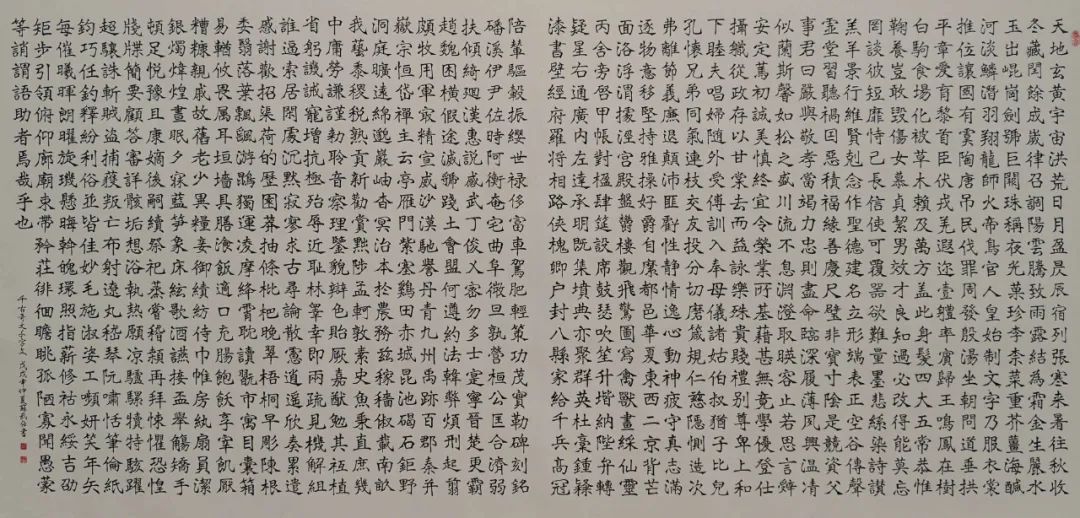 天地玄黃宇宙洪荒日月盈昃辰宿列張寒來暑往秋收
冬藏閏餘成歲律召調陽雲騰致雨露結為霜金生麗水
玉出崐崗劍號巨闕珠稱夜光菓珍李柰菜重芥薑海鹹
河淡鱗潛羽翔龍師火帝鳥官人皇始制文字乃服衣裳
推位讓國有虞陶唐弔民伐罪周發殷湯坐朝問道垂拱
平章愛育黎首臣伏戎羌遐邇壹體率賓歸王鳴鳳在樹
白駒食場化被草木賴及萬方蓋此身髮四大五常恭惟
鞠養豈敢毀傷女慕貞絜男效才良知過必改得能莫忘
罔談彼短靡恃己長信使可覆器欲難量墨悲絲染詩讚
羔羊景行維賢剋念作聖德建名立形端表正空谷傳聲
虛堂習聽禍因惡積福緣善慶尺璧非寶寸陰是競資父
事君曰嚴與敬孝當竭力忠則盡命臨深履薄夙興溫凊
似蘭斯馨如松之盛川流不息淵澄取暎容止若思言辭
安定篤初誠美慎終宜令榮業所基藉甚無竟學優登仕
攝職從政存以甘棠去而益詠樂殊貴賤禮別尊卑上和
下睦夫唱婦隨外受傅訓入奉母儀諸姑伯叔猶子比兒
孔懷兄弟同氣連枝交友投分切磨箴規仁慈隱惻造次
弗離節義廉退顛沛匪虧性靜情逸心動神疲守真志滿
逐物意移堅持雅操好爵自縻都邑華夏東西二京背芒
面洛浮渭據涇宮殿盤鬱樓觀飛驚圖寫禽獸畫綵仙靈
丙舍旁啓甲帳對楹肆筵設席鼓瑟吹笙升階納陛弁轉
疑星右通廣內左達承明既集墳典亦聚群英杜稾鍾隸
漆書壁經府羅將相路俠槐卿户封八縣家給千兵高冠
陪輦驅轂振纓世祿侈富車駕肥輕策功茂實勒碑刻銘
磻溪伊尹佐時阿衡奄宅曲阜微旦孰營桓公匡合濟弱
扶傾綺迴漢惠說感武丁俊乂密勿多士寔寧晉楚更霸
趙魏困橫假途滅虢踐土會盟何遵約法韓弊煩刑起翦
頗牧用軍最精宣威沙漠馳譽丹青九州禹跡百郡秦并
嶽宗恒岱禪主云亭雁門紫塞雞田赤城昆池碣石鉅野
洞庭曠遠綿邈巖岫杳冥治本於農務茲稼穡俶載南畝
我藝黍稷稅熟貢新勸賞黜陟孟軻敦素史魚秉直庶幾
中庸勞謙謹勑聆音察理鑒貌辯色貽厥嘉猷勉其祗植
省躬譏誡寵增抗極殆辱近恥林皋幸即兩疏見機解組
誰逼索居閑處沉默寂寥求古尋論散慮逍遙欣奏累遣
慼謝歡招渠荷的歷園莽抽條枇杷晚翠梧桐早彫陳根
委翳落葉飄颻游鵾獨運凌摩絳霄耽讀翫市寓目囊箱
易輶攸畏屬耳垣墻具膳湌飯適口充腸飽飫享宰飢厭
糟糠親戚故舊老少異糧妾御績紡侍巾帷房紈扇員潔
銀燭煒煌晝眠夕寐藍笋象床絃歌酒讌接盃舉觴矯手
頓足悅豫且康嫡後嗣續祭祀蒸嘗稽顙再拜悚懼恐惶
牋牒簡要顧答審詳骸垢想浴執熱願涼驢騾犢特駭躍
超驤誅斬賊盜捕獲叛亡布射遼丸嵇琴阮嘯恬筆倫紙
鈞巧任釣釋紛利俗並皆佳妙毛施淑姿工嚬妍笑年矢
每催曦暉朗曜旋璣懸晦斡魄環照指薪修祜永綏吉劭
矩步引領俯仰廊廟束帶矜莊徘徊瞻眺孤陋寡聞愚蒙
等誚謂語助者焉哉乎也
千古奇文千字文 戊戌年仲夏